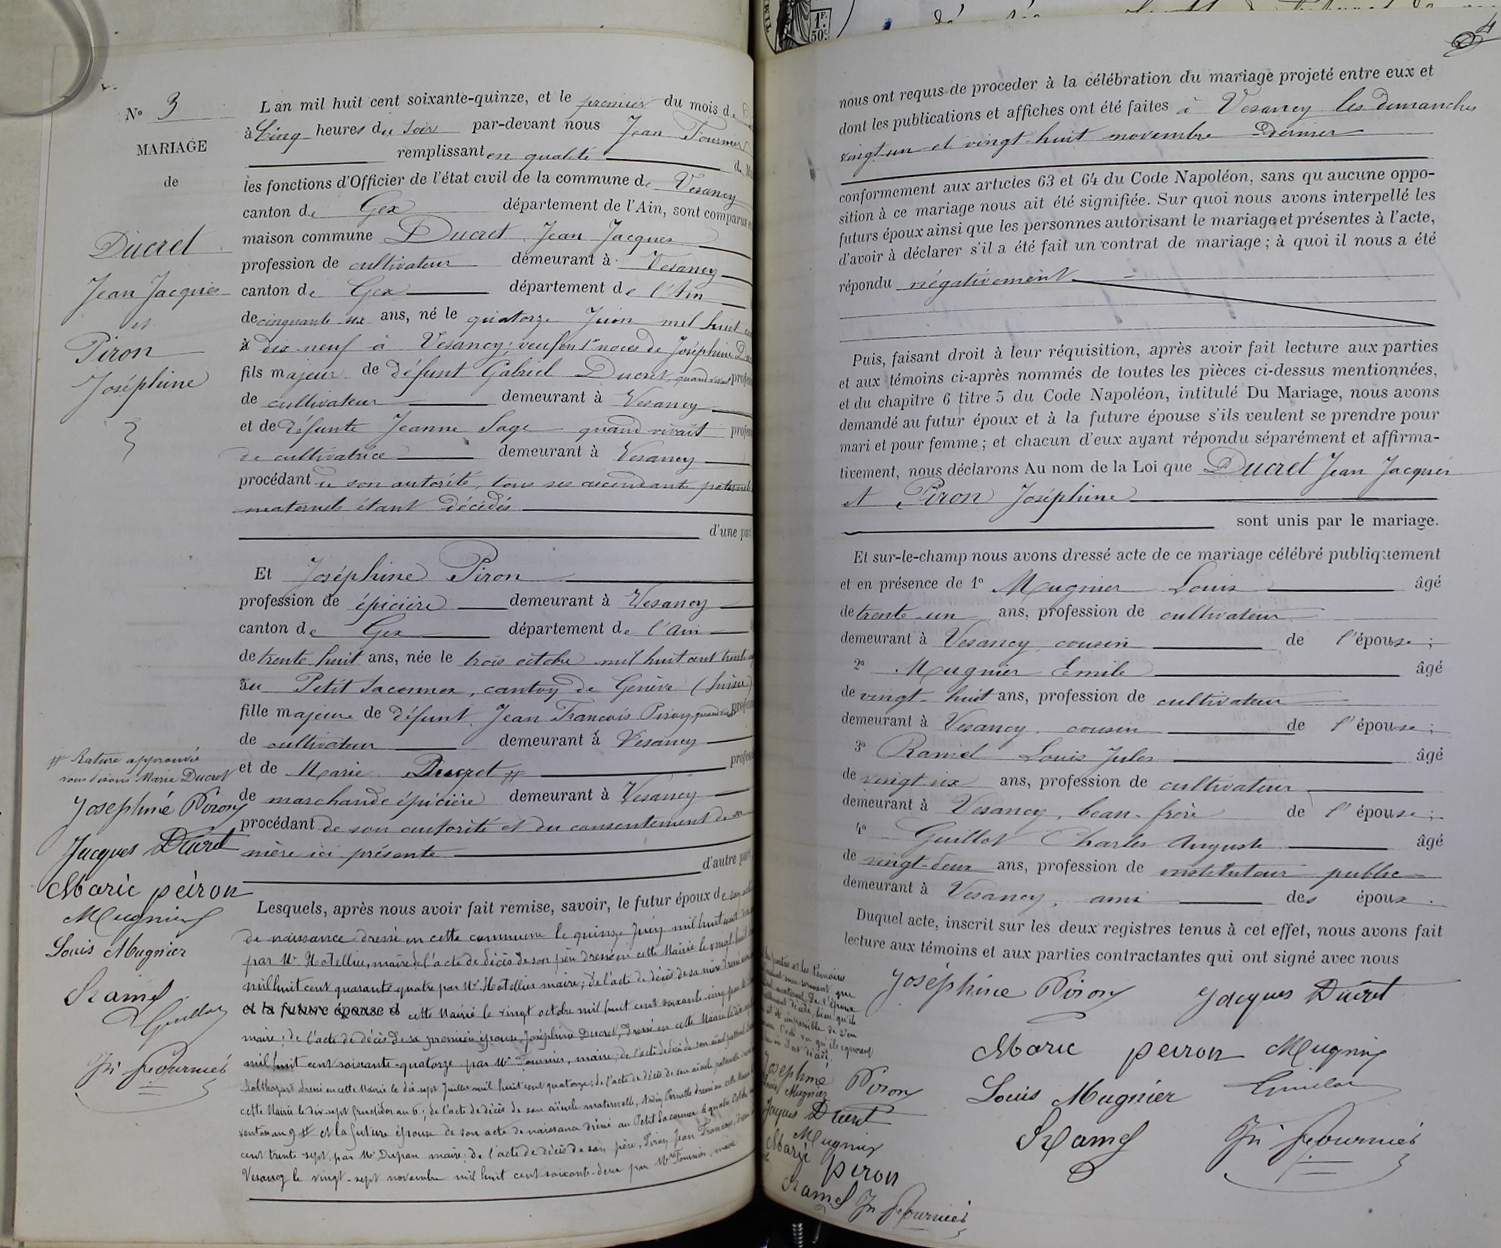 1F.
50c.
4
N° 3
MARIAGE
de
Ducret
Jean Jacques
et
Piron
Joséphine
L'an mil huit cent soixante-quinze, et le premier du mois de
à Cinq heures du Soir par-devant nous Jean Fournier
remplissant en qualité de
les fonctions d'Officier de l'état civil de la commune de Vesancy
canton de Gex département de l'Ain, sont comparus
maison commune Ducret Jean Jacques
profession de cultivateur demeurant à Vesancy
canton de Gex département de l'Ain
de cinquante six ans, né le quatorze Juin mil huit
dix neuf à Vesancy; veuf en 1res noces de Joséphine
fils majeur de défunt Gabriel Ducret, quand vivait
de cultivateur demeurant à Vesancy
et de défunte Jeanne Sage quand vivait
de cultivatrice demeurant à Vesancy
procédant de son autorité, tous ses ascendants paternels
maternels étant décédés
d'une par
Et Joséphine Piron
profession de épicière demeurant à Vesancy
canton de Gex département de l'Ain
de trente huit ans, née le trois octobre mil huit cent trente
au Petit Saconnex, canton de Genève (Suisse)
fille majeure de défunt Jean François Piron, quand vivait
de cultivateur demeurant à Vesancy
et de Marie Ducret #
de marchande épicière demeurant à Vesancy
procédant de son autorité et du consentement de sa
mère ici présente
d'autre part
# Rature approuvée
nous disons Marie Ducret
Joséphine Piron
Jacques Ducret
Marie peiron
Mugnier
Louis Mugnier
Ramel
Guillot
Jn Fournier
Lesquels, après nous avoir fait remise, savoir, le futur époux de son
de naissance dressé en cette commune le quinze Juin mil huit cent
par Mr Hotellier, maire; de l'acte de décès de son père dressé en cette Mairie le vingt huit
mil huit cent quarante quatre par Mr Hotellier maire; de l'acte de décès de sa mère
et la future épouse de cette Mairie le vingt octobre mil huit cent soixante cinq par
maire; de l'acte de décès de sa première épouse, Joséphine Ducret, dressé en cette Mairie le
mil huit cent soixante-quatorze par Mr Fournier, maire; de l'acte de décès de son aïeul
Balthazard dressé en cette Mairie le dix sept Juillet mil huit cent quatorze; de l'acte de décès de son aïeule paternelle
cette Mairie le dix sept fructidor an 6; de l'acte de décès de son aïeule maternelle,
ventôse an 9 # et la future épouse de son acte de naissance dressé au Petit Saconnex le quatre Octobre
cent trente sept par Mr maire; de l'acte de décès de son père, Piron Jean François,
Vesancy le vingt-sept novembre mil huit cent soixante-deux par Mr Fournier, maire
nous ont requis de proceder à la célébration du mariage projeté entre eux et
dont les publications et affiches ont été faites à Vesancy les dimanches
vingt-un et vingt huit novembre dernier
conformement aux articles 63 et 64 du Code Napoléon, sans qu'aucune oppo-
sition à ce mariage nous ait été signifiée. Sur quoi nous avons interpellé les
futurs époux ainsi que les personnes autorisant le mariage et présentes à l'acte,
d'avoir à déclarer s'il a été fait un contrat de mariage; à quoi il nous a été
répondu négativement
Puis, faisant droit à leur réquisition, après avoir fait lecture aux parties
et aux témoins ci-après nommés de toutes les pièces ci-dessus mentionnées,
et du chapitre 6 titre 5 du Code Napoléon, intitulé Du Mariage, nous avons
demandé au futur époux et à la future épouse s'ils veulent se prendre pour
mari et pour femme; et chacun d'eux ayant répondu séparément et affirma-
tivement, nous déclarons Au nom de la Loi que Ducret Jean Jacques
et Piron Joséphine
sont unis par le mariage.
Et sur-le-champ nous avons dressé acte de ce mariage célébré publiquement
et en présence de 1° Mugnier Louis âgé
de trente-un ans, profession de cultivateur
demeurant à Vesancy cousin de l'épouse;
2° Mugnier Emile âgé
de vingt-huit ans, profession de cultivateur
demeurant à Vesancy cousin de l'épouse;
3° Ramel Louis Jules âgé
de vingt six ans, profession de cultivateur
demeurant à Vesancy, beau-frère de l'épouse;
4° Guillot Charles Auguste âgé
de vingt-deux ans, profession de instituteur public
demeurant à Vesancy, ami des époux.
Duquel acte, inscrit sur les deux registres tenus à cet effet, nous avons fait
lecture aux témoins et aux parties contractantes qui ont signé avec nous
Joséphine Piron Jacques Ducret
Marie peiron Mugnier
Louis Mugnier Guillot
Ramel Jn Fournier
Joséphine Piron
Louis Mugnier
Jacques Ducret
Mugnier
Marie peron
Ramel Jn Fournier